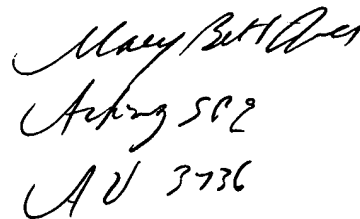 Mary Beth
Acting SPE
AU 3736